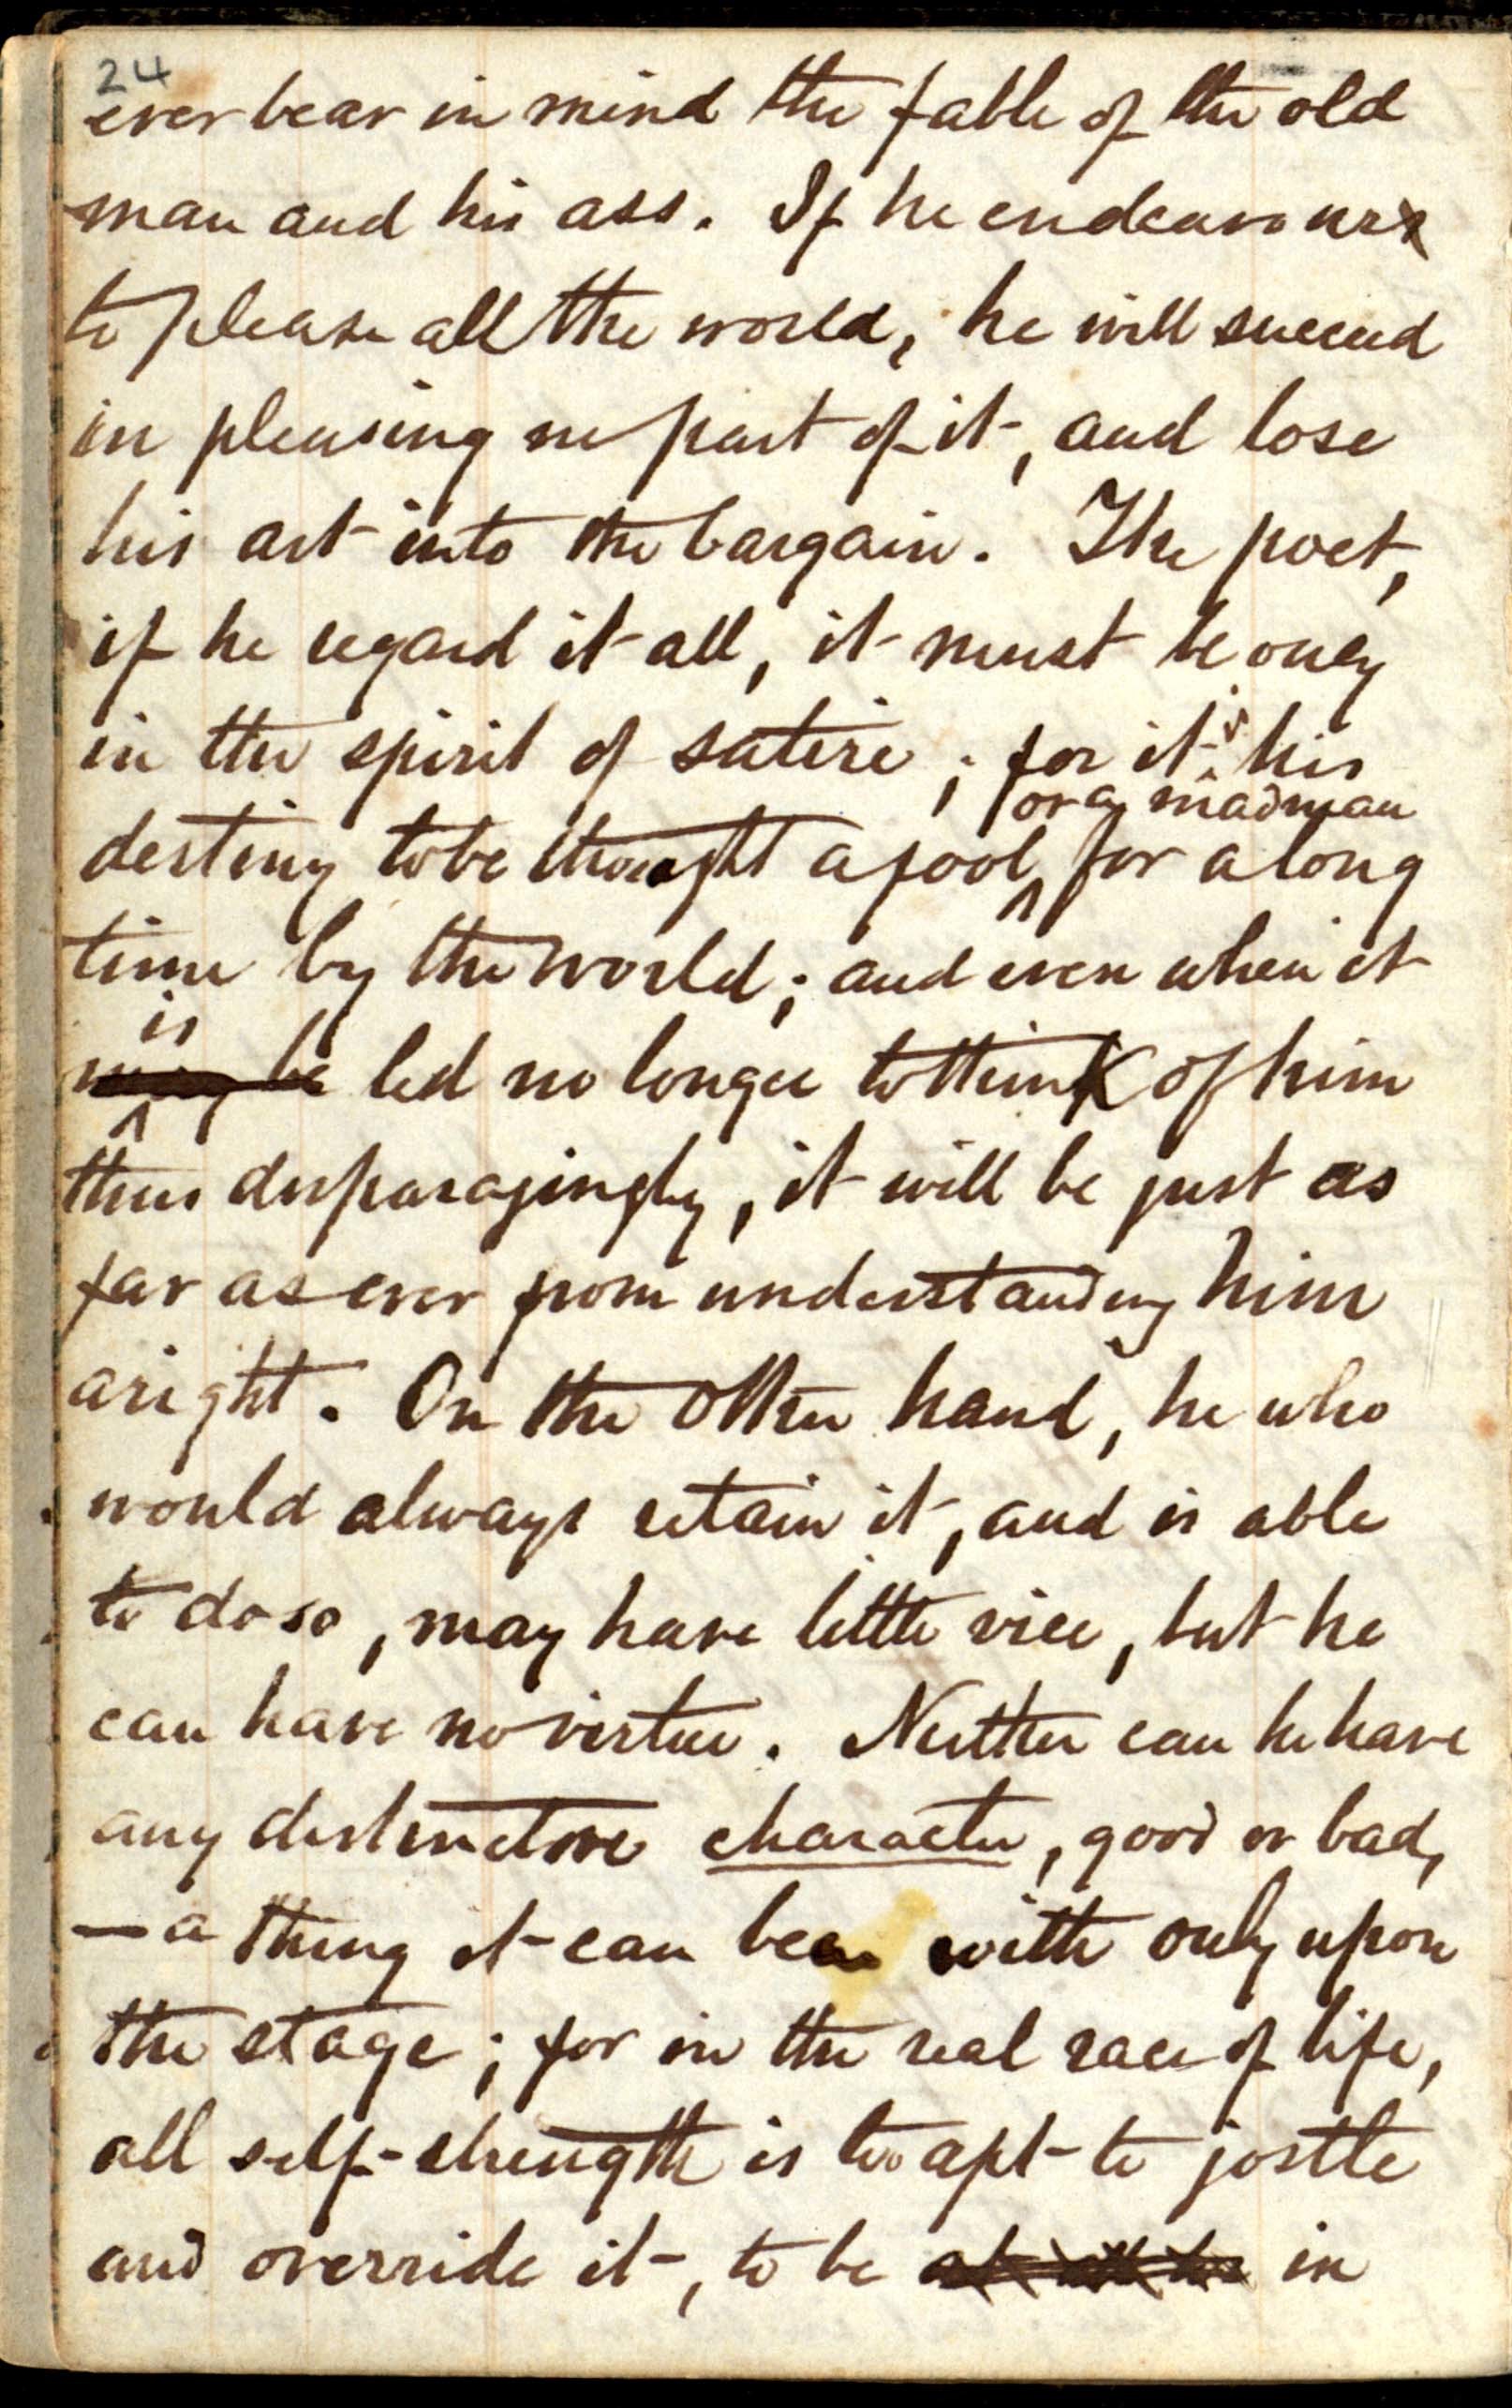 24
ever bear in mind the fable of the old
man and his ass. If he endeavours
to please all the world, he will succeed
in pleasing no part of it, and lose
his art into the bargain. The poet,
if he regard it all, it must be only
in the spirit of satire; for it is his
or a madman
destiny to be thought a fool for a long
time by the world; and even when it
is
may be led no longer to think of him
thus disparagingly, it will be just as
far as ever from understanding him
aright. On the other hand, he who
would always retain it, and is able
to do so, may have little vice, but he
can have no virtue. Neither can he have
any distinctive character, good or bad,
— a thing it can bear with only upon
the stage; for in the real race of life,
all self-strength is too apt to jostle
and override it, to be in